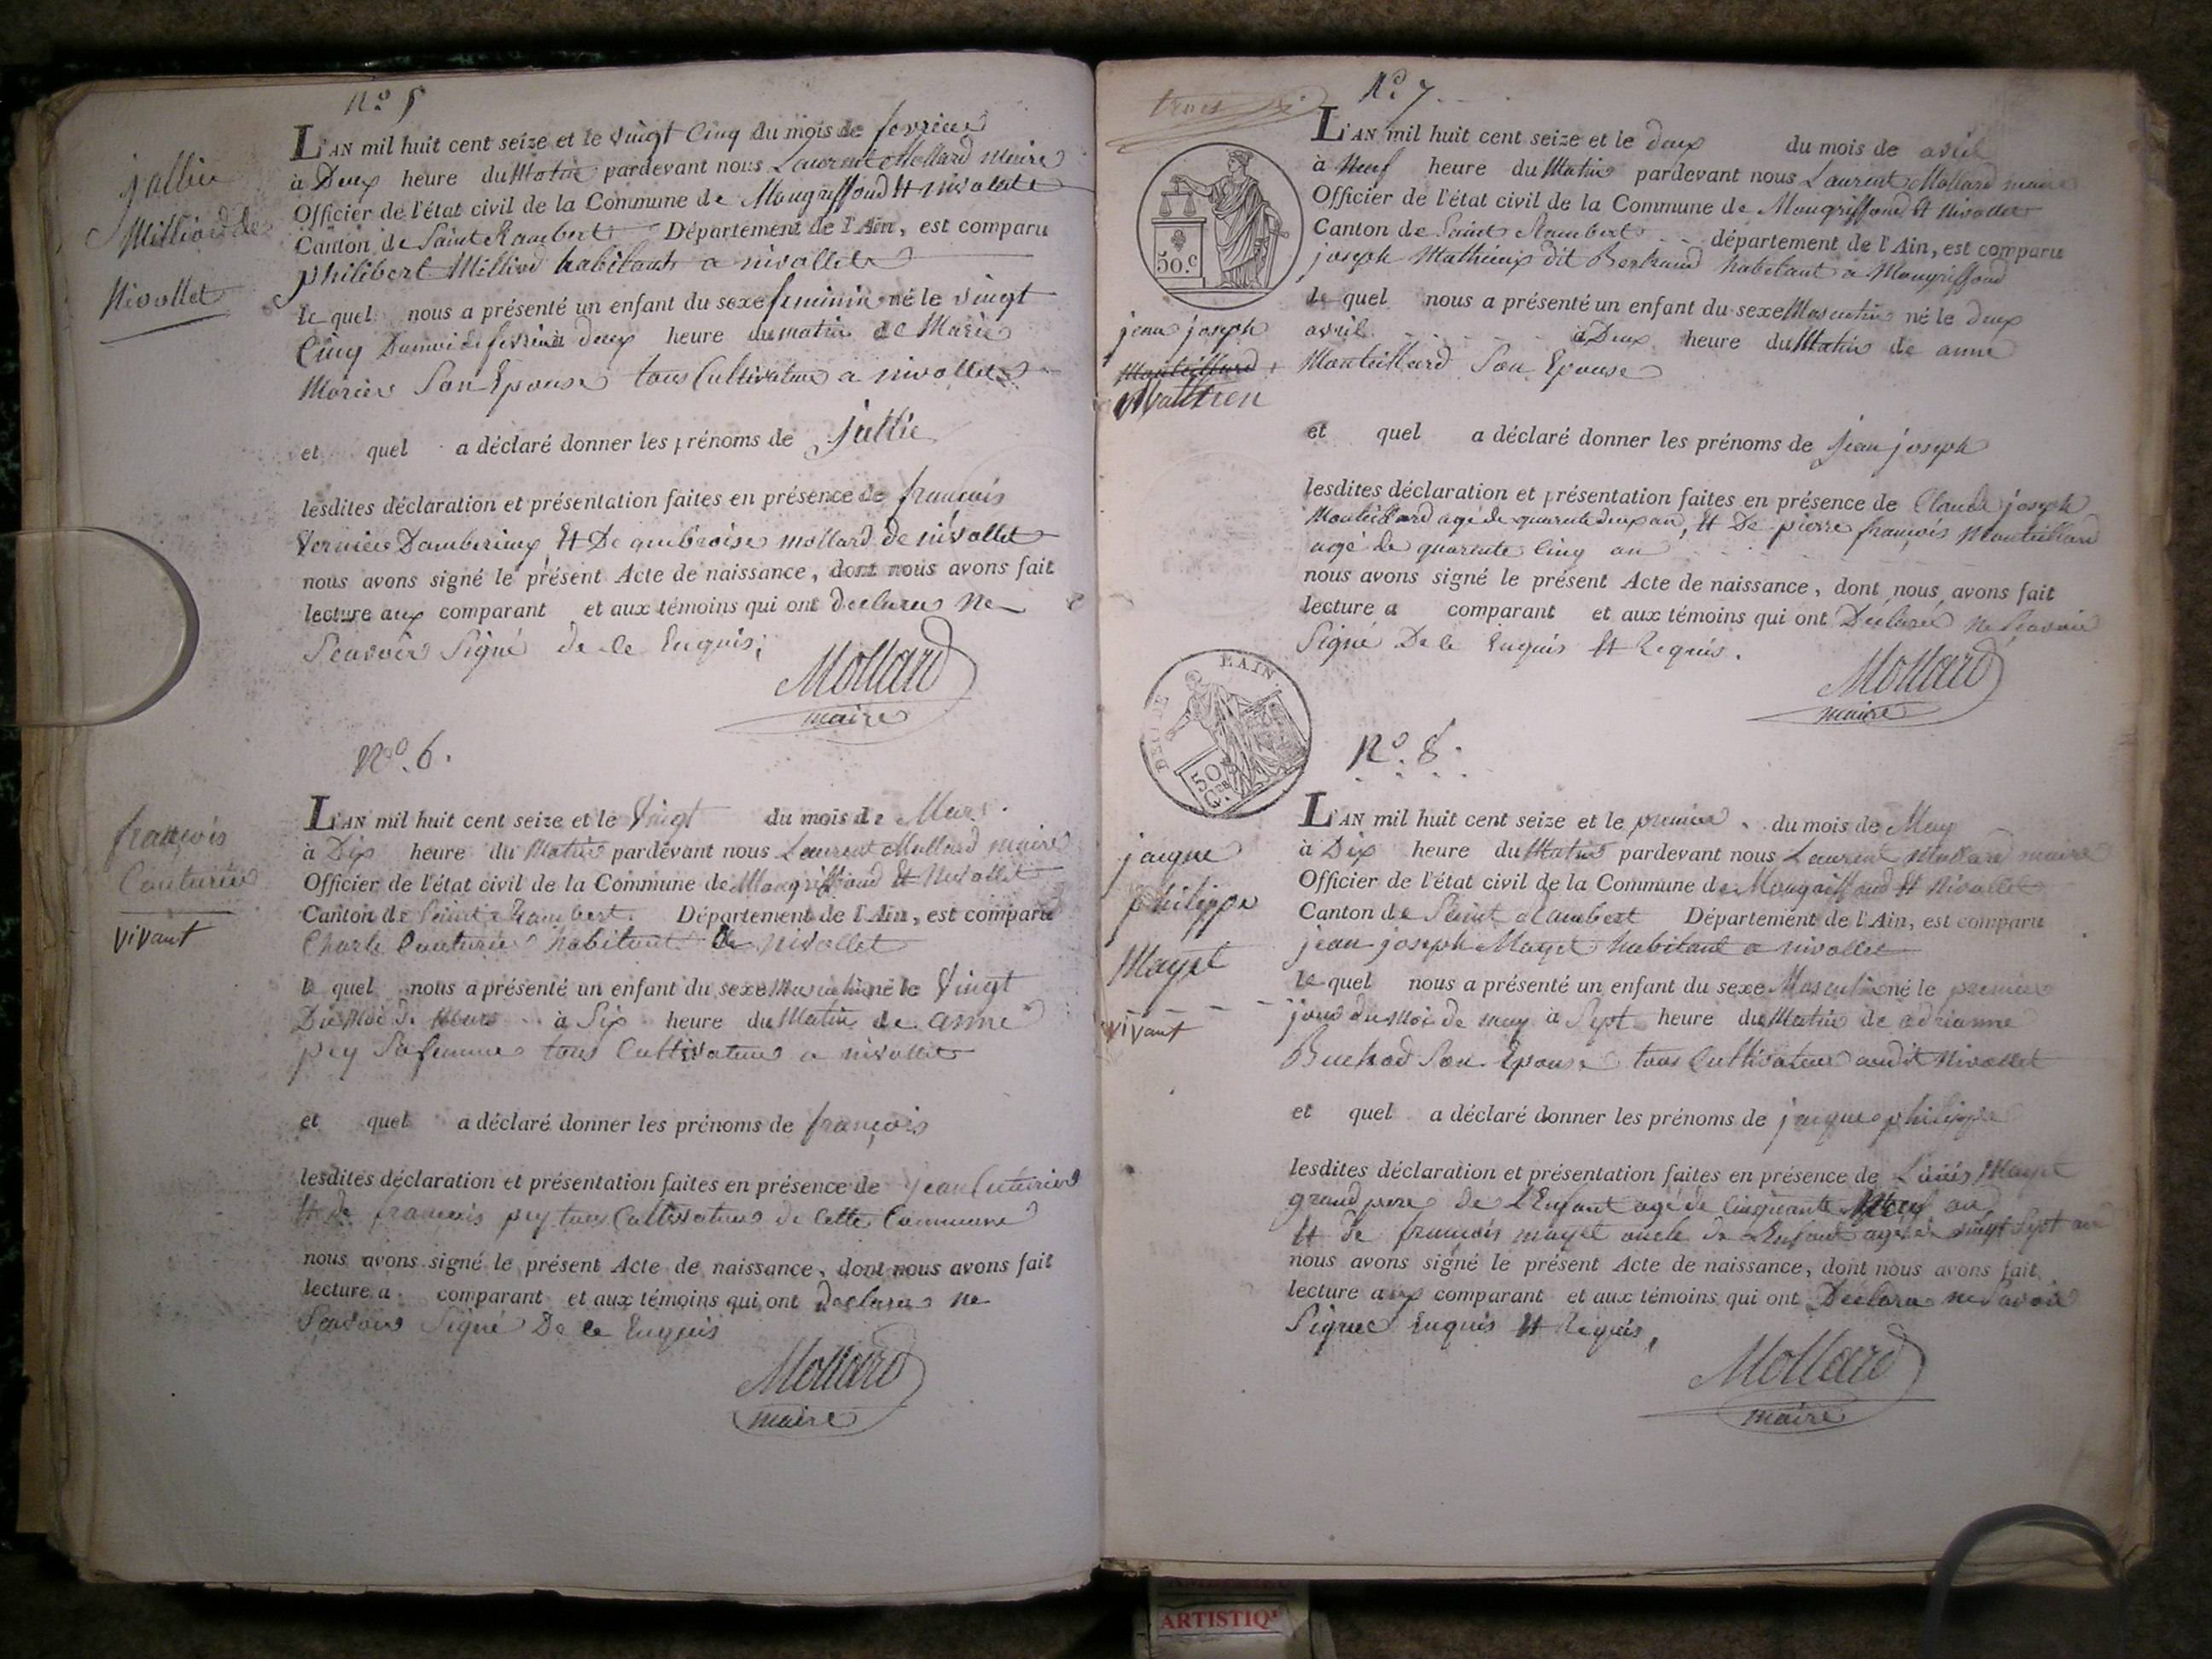 N.º 5
jallie
Milliand de
Nivollet
L'AN mil huit cent seize et le vingt Cinq du mois de fevrier
à Deux heure du Matin pardevant nous Laurent Mollard maire
Officier de l'état civil de la Commune de Mongriffond et nivollet
Canton de Saint Rambert Département de l'Ain, est comparu
philibert Milliand habitant a nivollet
le quel nous a présenté un enfant du sexe feminin né le vingt
Cinq Dumoi de fevrier à deux heure du matin de Marie
Morier Son Epouse tous Cultivateur a nivollet
et quel a déclaré donner les prénoms de jullie
lesdites déclaration et présentation faites en présence de francois
Dambérieux et De ambroise mollard de nivollet
nous avons signé le présent Acte de naissance, dont nous avons fait
lecture aux comparant et aux témoins qui ont declares ne
Scavoir Signé de ce Enquis;
Mollard
maire
N.º 6.
françois
Couturier
vivant
L'AN mil huit cent seize et le Vingt du mois de Mars.
à Dix heure du Matin pardevant nous Laurent Mollard maire
Officier de l'état civil de la Commune de Mongriffond et Nivollet
Canton de Saint Rambert. Département de l'Ain, est comparu
Charle Couturier habitant de nivollet
le quel nous a présenté un enfant du sexe Masculin né le Vingt
Du Moi de Mars à Six heure du Matin de anne
pey Sa femme tous Cultivateur a nivollet
et quel a déclaré donner les prénoms de françois
lesdites déclaration et présentation faites en présence de jean Cuturier
et de francois pey tous Cultivateur de Cette Commune
nous avons signé le présent Acte de naissance, dont nous avons fait
lecture a comparant et aux témoins qui ont declares ne
Scavoir Signé De ce Enquis
Mollard
maire
trois
N.º 7.
50.c
jean joseph
Monteillard
Mathieu
L'AN mil huit cent seize et le deux du mois de avril
à Neuf heure du Matin pardevant nous Laurent Mollard maire
Officier de l'état civil de la Commune de Mongriffond et Nivollet
Canton de Saint Rambert département de l'Ain, est comparu
joseph Mathieux dit Bertrand habitant a Mongriffond
le quel nous a présenté un enfant du sexe Masculin né le deux
avril à Deux heure du Matin de anne
Monteillard Son Epouse
et quel a déclaré donner les prénoms de jean joseph
lesdites déclaration et présentation faites en présence de Claude joseph
Monteillard agé de quarente deux an, et De pierre françois Monteillard
agé de quarente Cinq an
nous avons signé le présent Acte de naissance, dont nous avons fait
lecture a comparant et aux témoins qui ont Déclaré ne Scavoir
Signé De ce Enquis et Requis.
Mollard
maire
DE L'AIN.
50
N.º 8.
jacque
philippe
Mayet
vivant
L'AN mil huit cent seize et le premier du mois de May
à Dix heure du Matin pardevant nous Laurent Mollard maire
Officier de l'état civil de la Commune de Mongriffond et Nivollet
Canton de Saint Rambert Département de l'Ain, est comparu
jean joseph Mayet habitant a nivollet
le quel nous a présenté un enfant du sexe Masculin né le premier
jour du Moi de may à Sept heure du Matin de adrianne
Buchod Son Epouse tous Cultivateur audit Nivollet
et quel a déclaré donner les prénoms de jacque philippe
lesdites déclaration et présentation faites en présence de Louis Mayet
grand pere de L'Enfant agé de Cinquante Neuf an
et de françois mayet oncle de L'Enfant agé de vingt Sept an
nous avons signé le présent Acte de naissance, dont nous avons fait
lecture aux comparant et aux témoins qui ont Déclaré ne Savoir
Signer Enquis et Requis,
Mollard
maire
ARTISTIQ